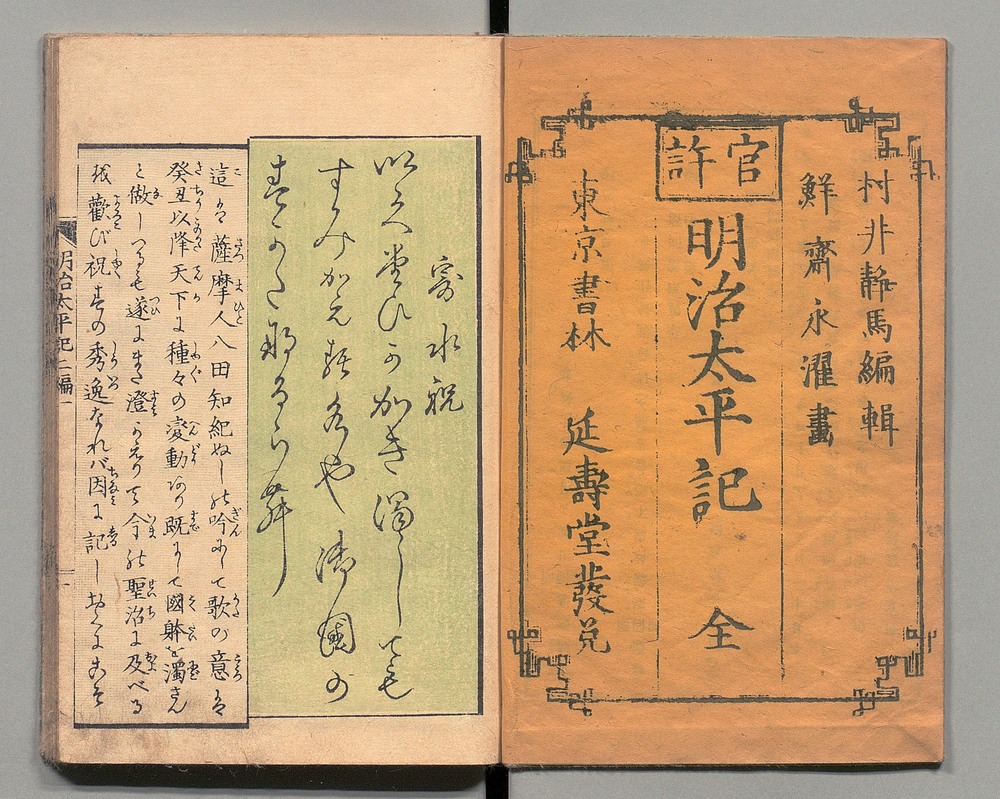 村井靜馬編輯
鮮齋永濯畫
官許
明治太平記 全
東京書林 延壽堂發兌
寄水祝
かき濁しても
すみかえる 御國の
すかた なるらむ
這は薩摩人八田知紀ぬしの吟にて歌の意は
癸丑以降天下に種々の変動あり既にして國躰を濁さん
と做しつるも遂にまた澄かえりて今の聖治に及べる
を歡び祝すの秀逸なれバ因に記しおくにこそ
明治太平記二編一